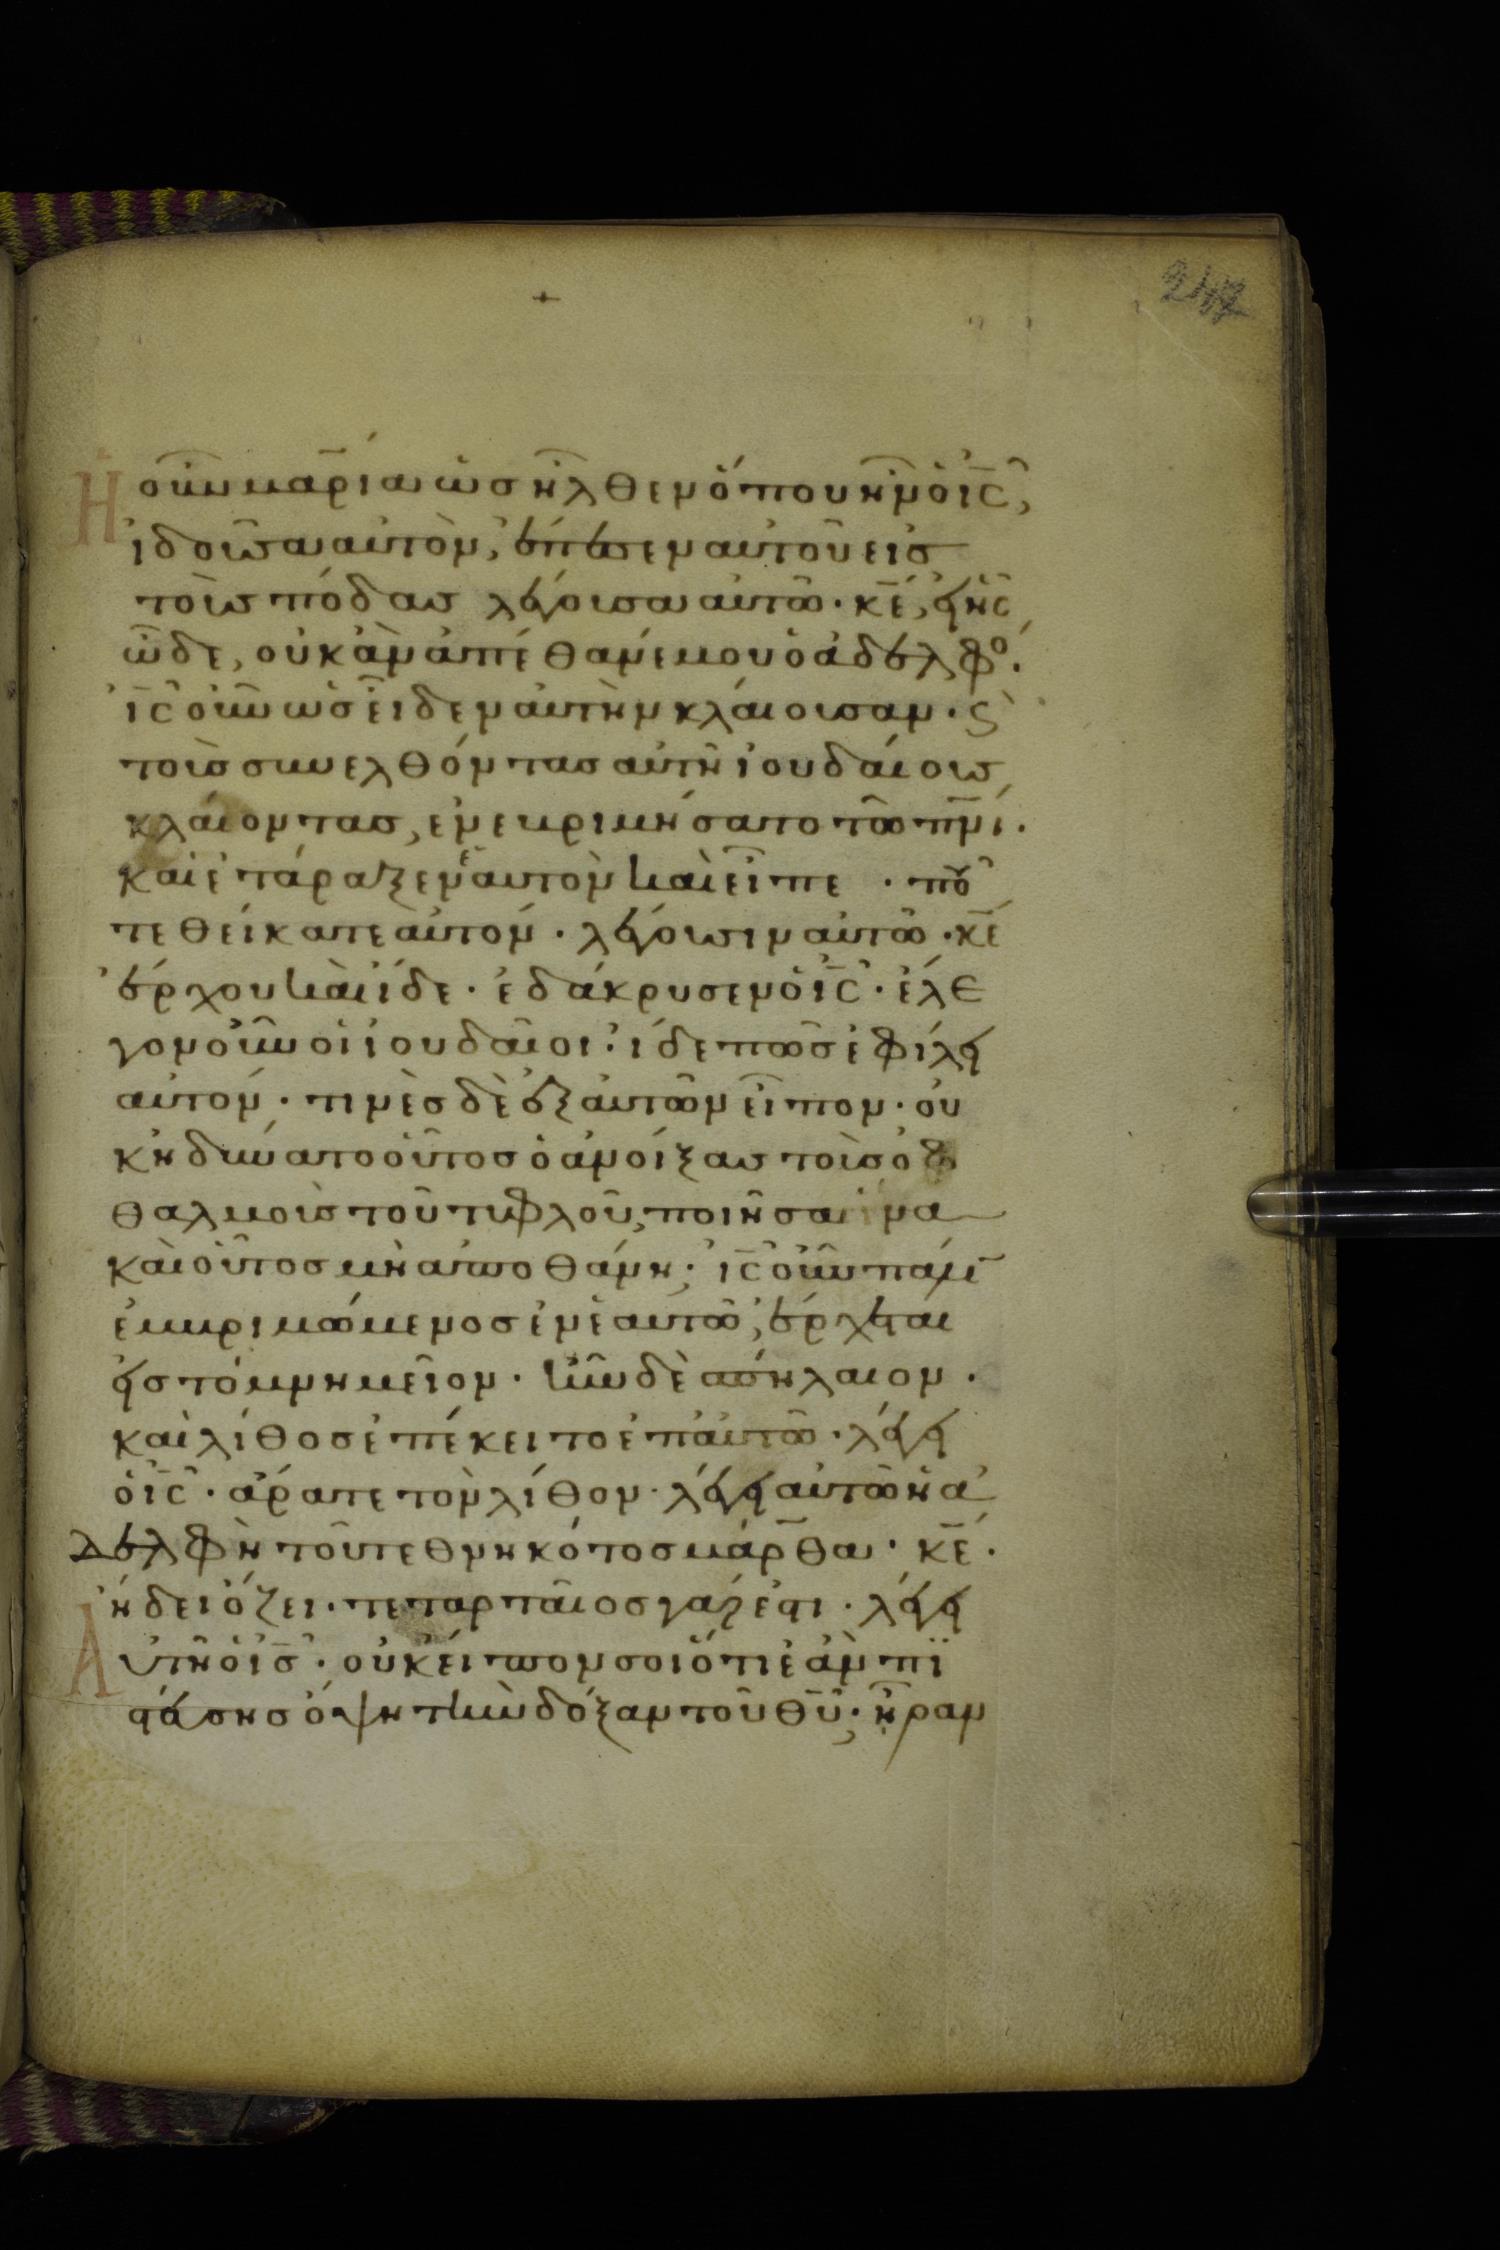 247
Ἡ οὖν μαρία ὡς ἦλθεν ὅπου ἦν ὁ ις̅,
ἰδοῦσα αὐτὸν, ἔπεσεν αὐτοῦ εἰς
τοὺς πόδας λέγουσα αὐτῶ · κ̅ε, εἰ ἦς
ὧδε, οὐκ ἂν ἀπέθανέ μου ὁ ἀδελφο ·
ι̅ς οὖν ὡς εἶδεν αὐτὴν κλαίουσαν · ϛ
τοὺς συνελθόντας αὐτῆ ἰουδαίους
κλαίοντας, ἐνεβριμήσατο τῶ π̅νι ·
καὶ ἐτάραξεν ἑαυτὸν καὶ εἶπε · ποῦ
τεθείκατε αὐτόν · λέγουσιν αὐτῶ · κ̅ε
ἔρχου καὶ ἴδε · ἐδάκρυσεν ὁ ι̅ς · ἔλε
γον οὖν οἱ ἰουδαῖοι · ἴδε πῶς ἐφίλει
αὐτόν · τινὲς δὲ ἐξ αὐτῶν εἶπον · οὐ
κ ἠδύνατο οὗτος ὁ ἀνοίξας τοὺς ὀφ
θαλμοὺς τοῦ τυφλοῦ, ποιῆσαι ἵνα
καὶ οὗτος μὴ ἀποθάνη; ι̅ς οὖν πάλι̅
ἐμβριμώμενος ἐν ἑαυτῶ, ἔρχεται
εἰς τὸ μνημεῖον · ἦν δὲ σπήλαιον ·
καὶ λίθος ἐπέκειτο ἐπ' αὐτῶ · λέγει
ὁ ι̅ς · ἄρατε τὸν λίθον · λέγει αὐτῶ ἡ ἀ
δελφὴ τοῦ τεθνηκότος μάρθα · κ̅ε ·
ἤδει ὄζει · τεταρταῖος γάρ ἐστι · λέγει
Αὐτῆ ὁ ι̅ς · οὐκ εἶπον σοι ὅτι ἐὰν πι
στεύσης ὄψη τὴν δόξαν τοῦ θ̅υ; ἦραν